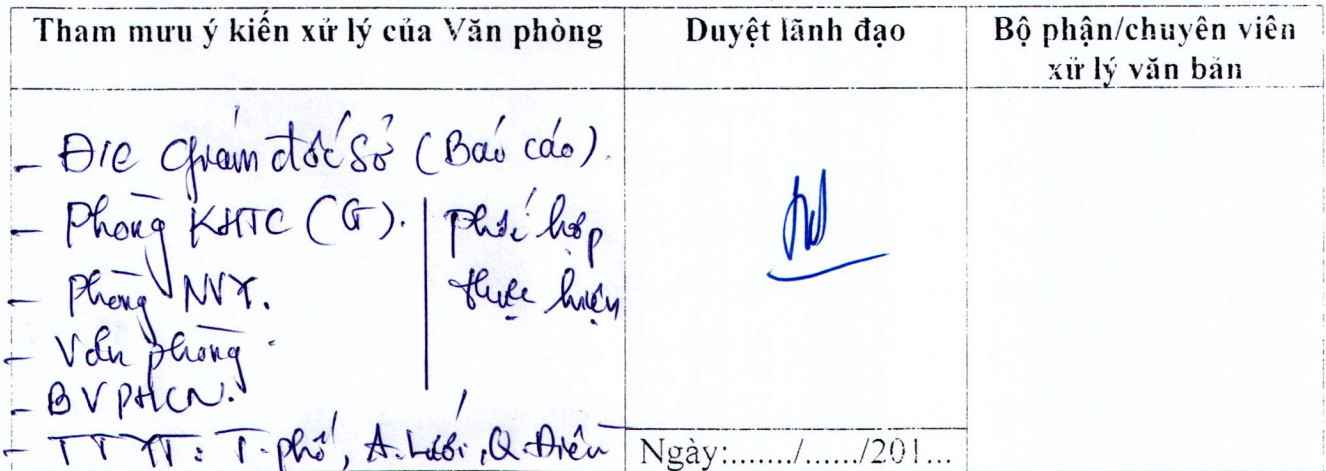 Tham mưu ý kiến xử lý của Văn phòng
Duyệt lãnh đạo
Bộ phận/chuyên viên
xử lý văn bản
- Đ/c Giám đốc Sở (Báo cáo).
- Phòng KHTC (G).
- Phòng NVY.
- Văn phòng.
phối hợp
thực hiện
- BV PHCN.
- TTYT: T.phố, A.Lưới, Q.Điền
Ngày:....../....../201...